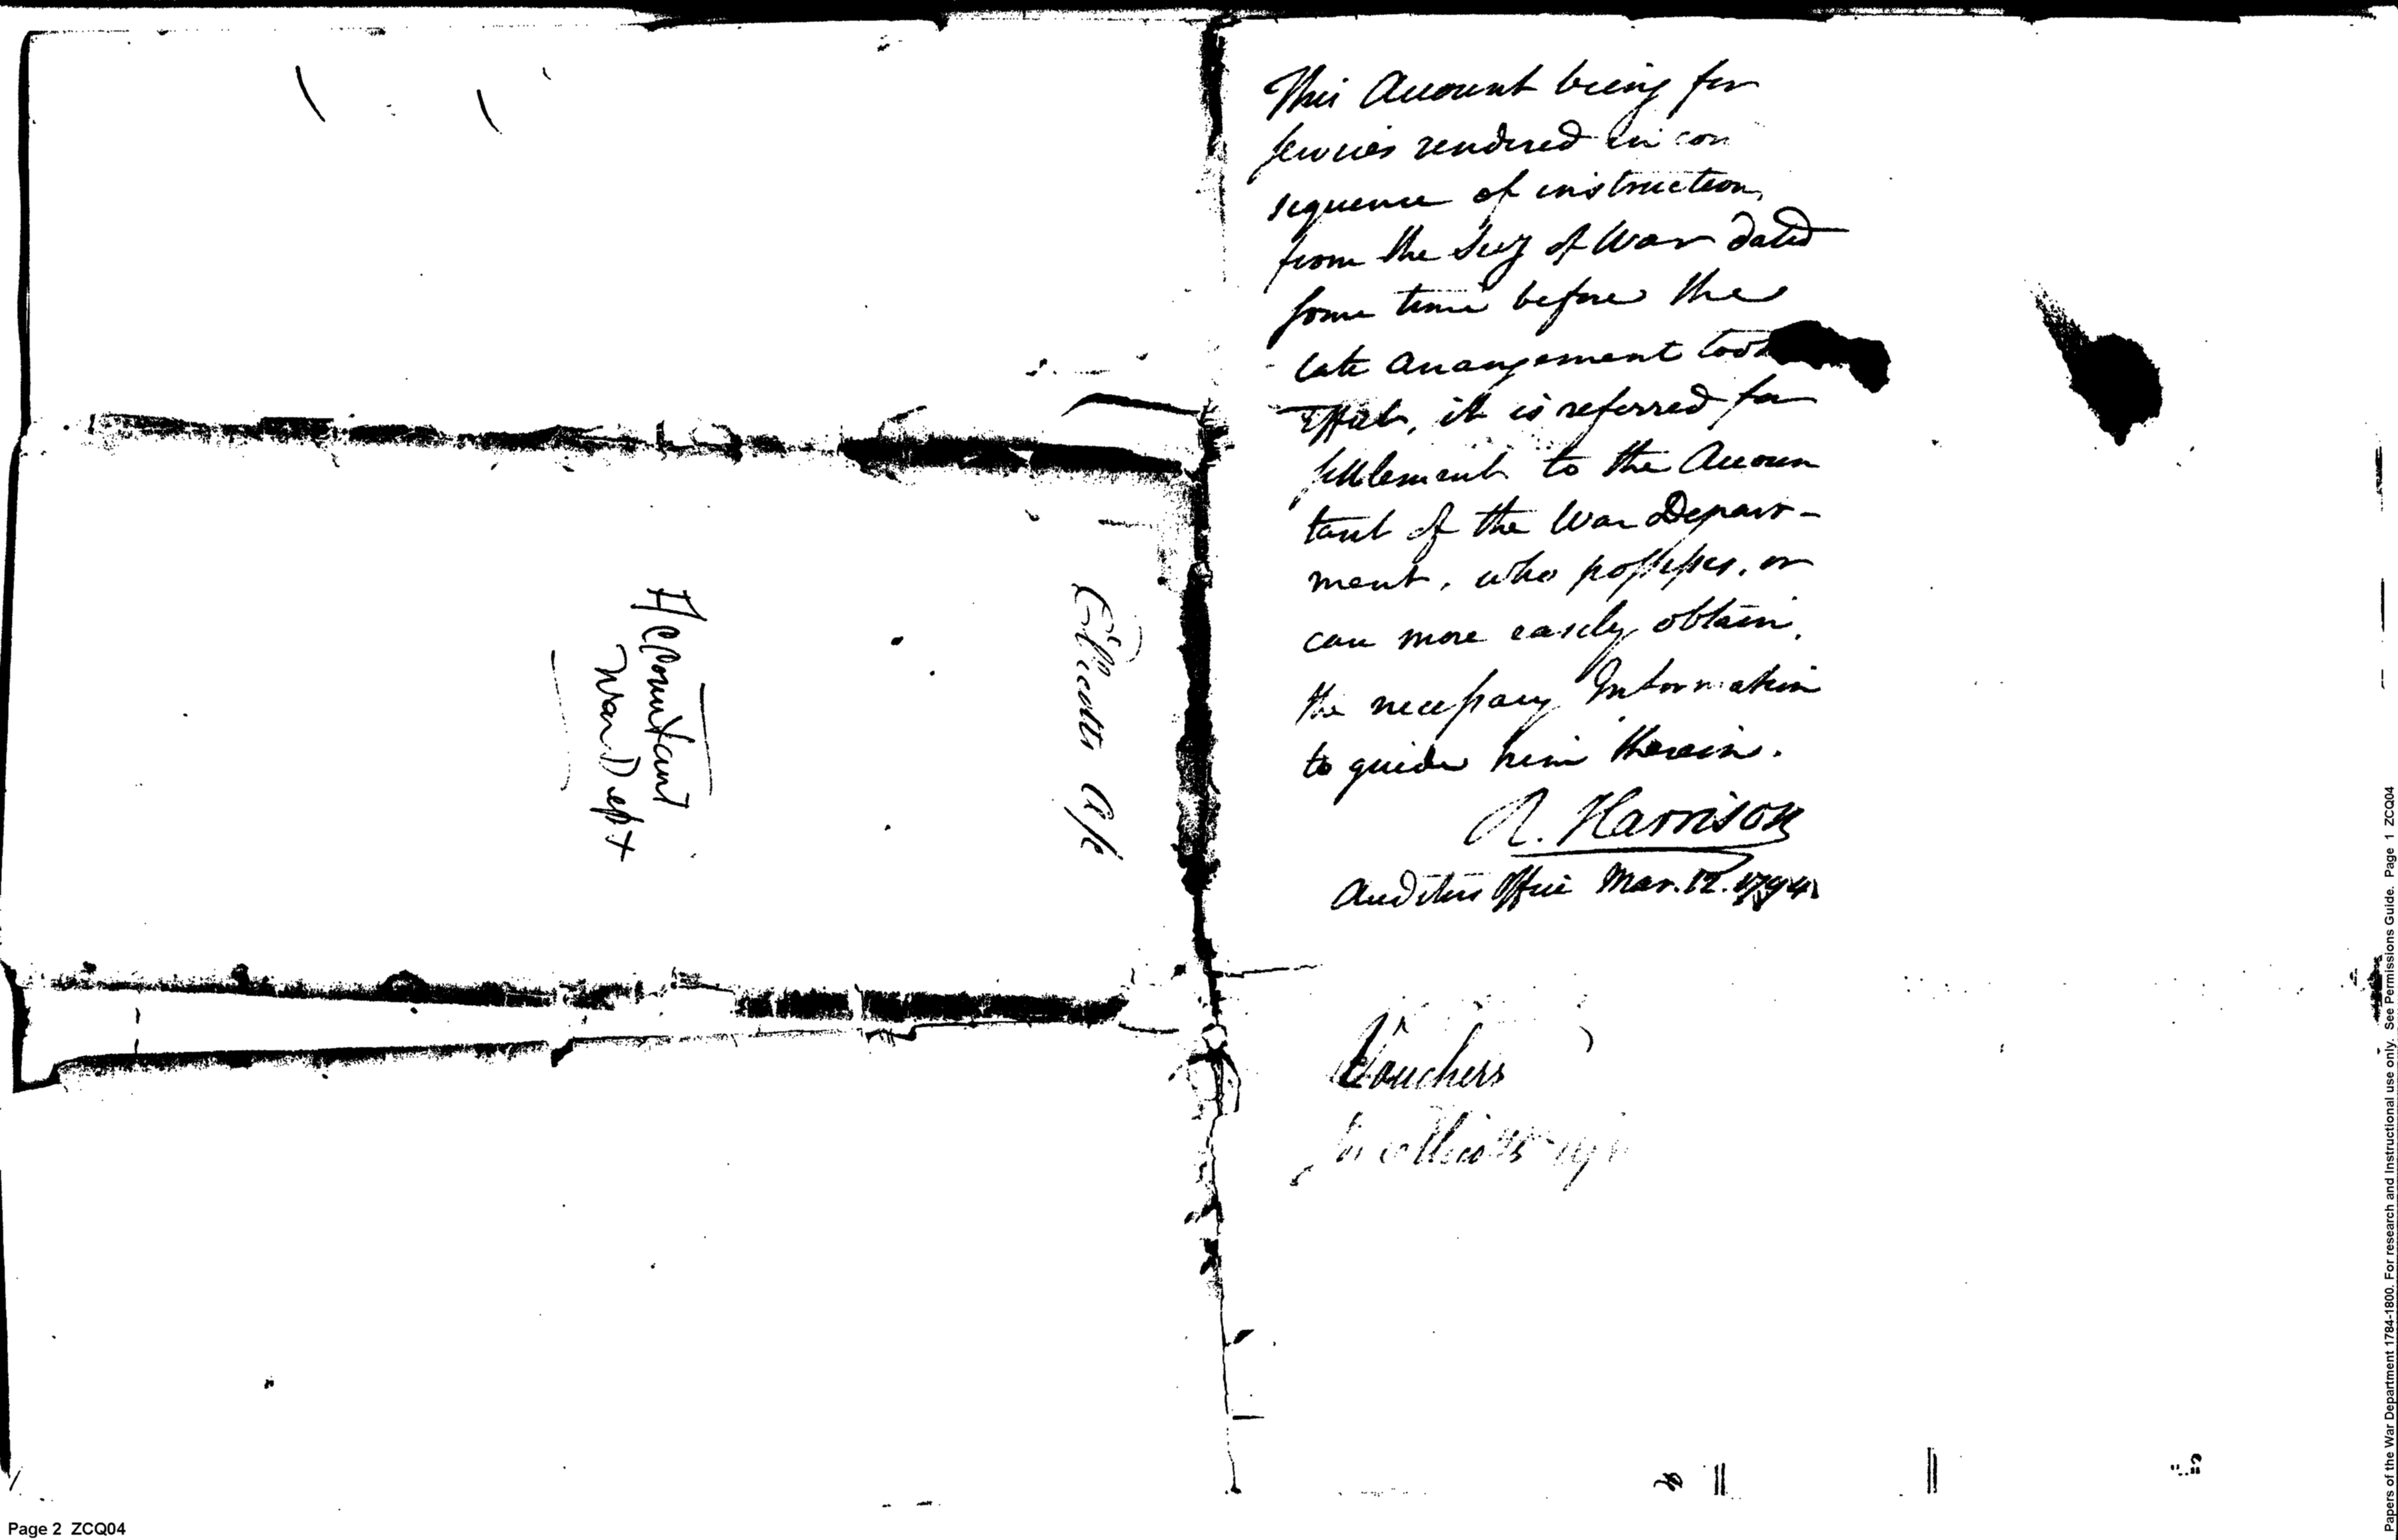 Accountant
War Dept
Ellicotts A/c
This Account being for
services rendered in con
sequence of instruction
from the Secy of War dated
some time before the
late arrangement took
effect, it is referred for
settlement to the Accoun
tant of the War Depart-
ment, who possesses, or
can more easily obtain,
the necessary Information
to guide him therein.
R. Harrison
Auditors Office Mar. 12. 1794
Vouchers
Ellicotts
Page 2 ZCQ04
Papers of the War Department 1784-1800. For research and Instructional use only. See Permissions Guide. Page 1 ZCQ04